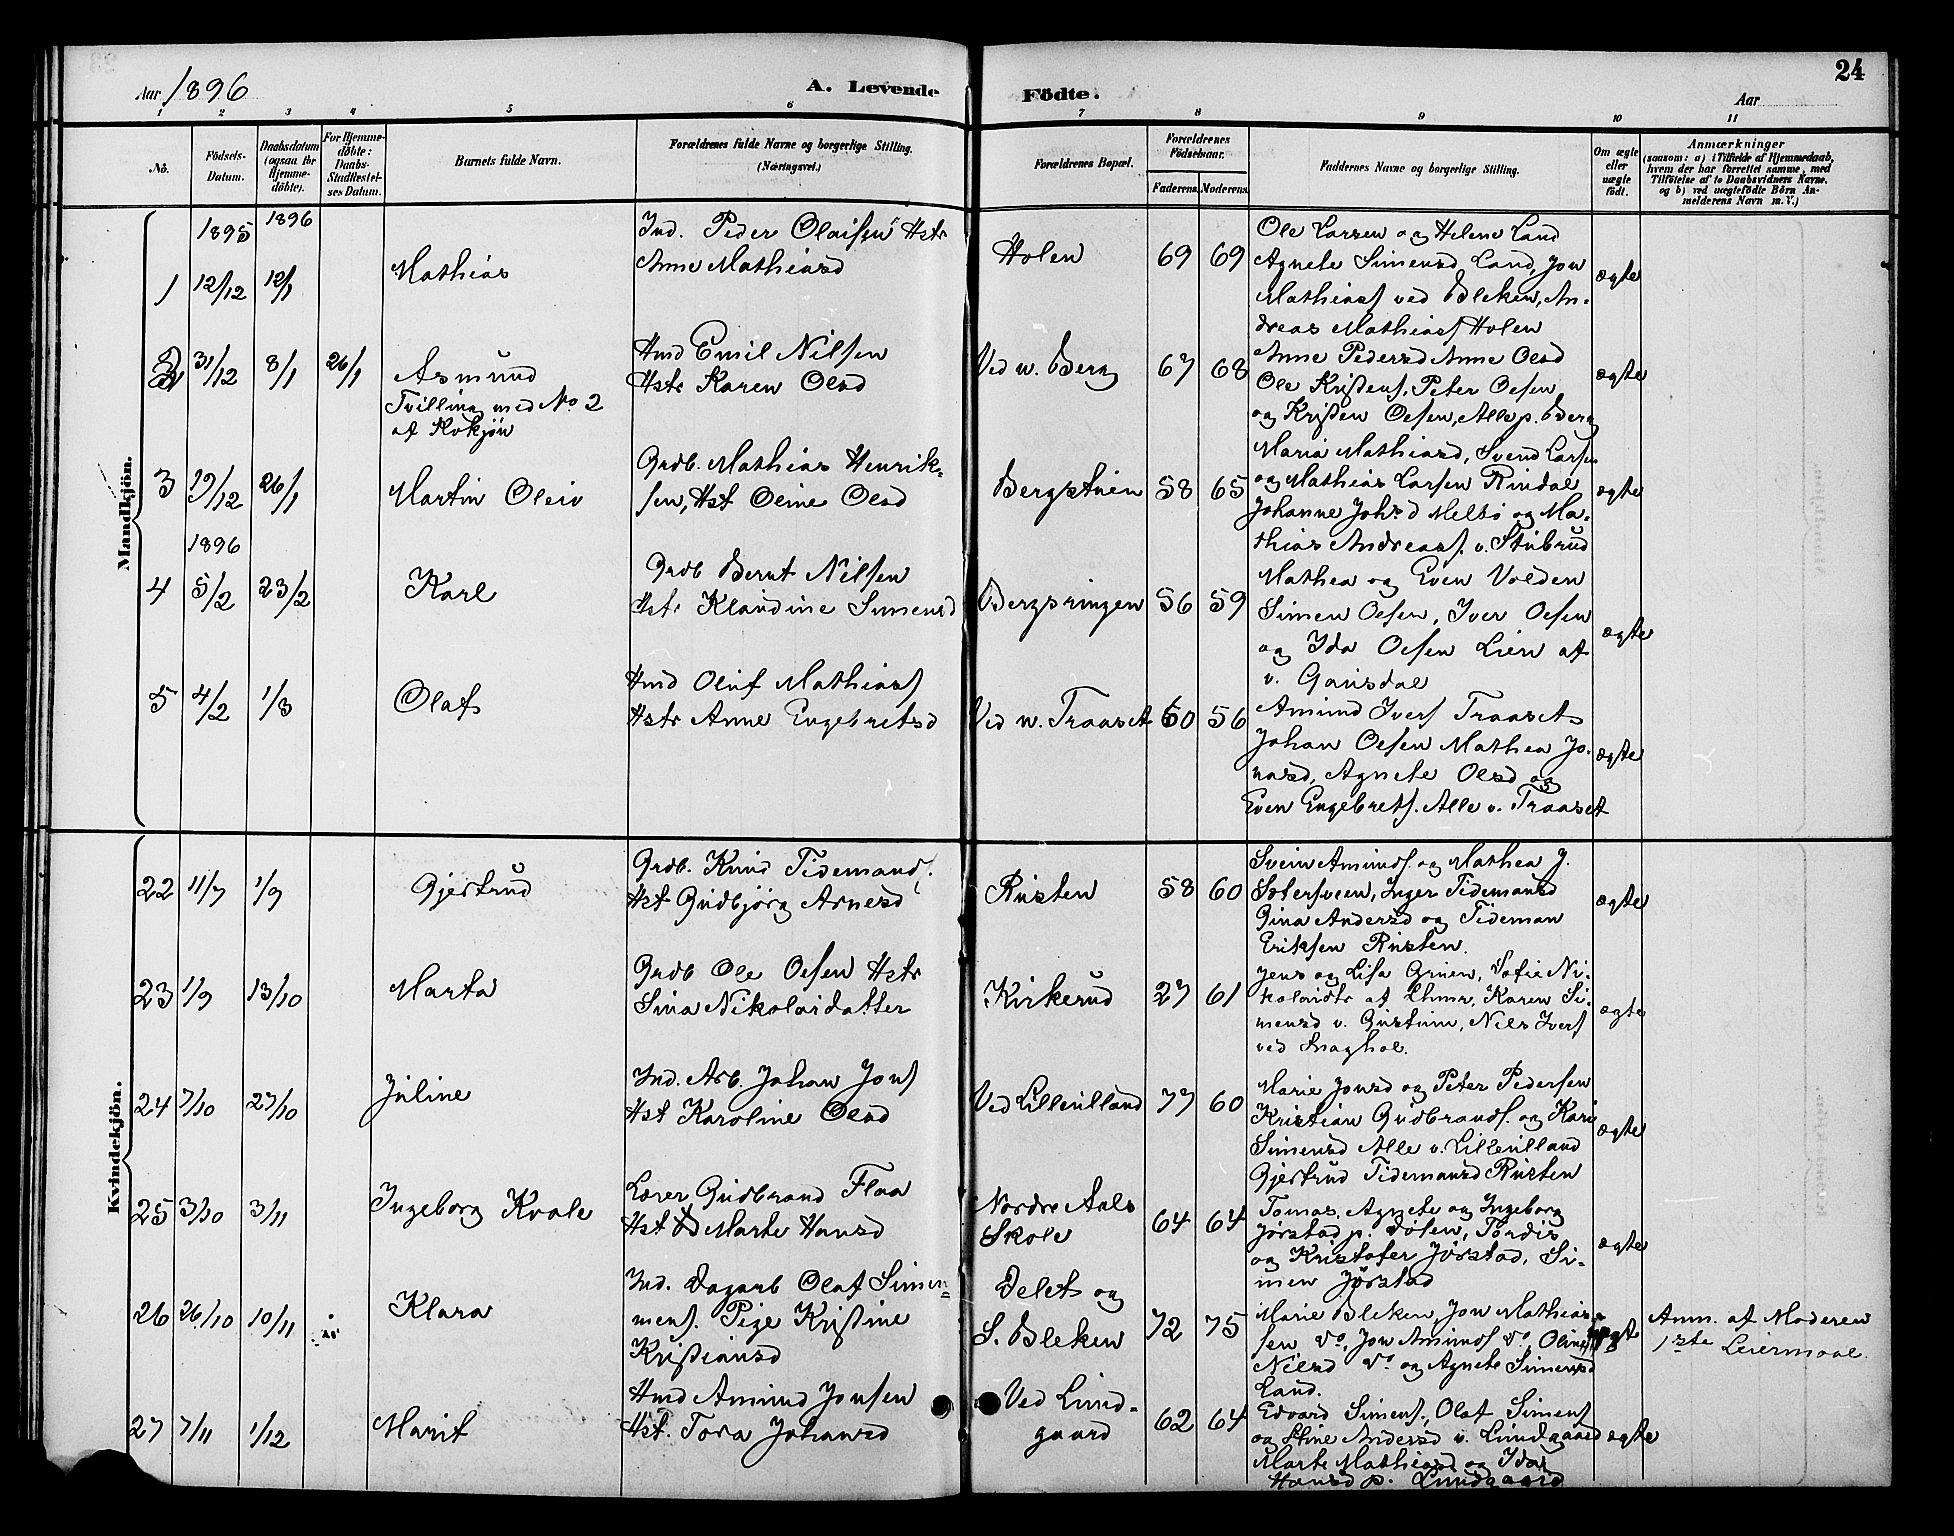 24
Aar 1896
A. Levende
Födte.
Aar
1 2 3 4 5 6 7 8 9 10 11
No.
Födsels-
Datum.
Daabsdatum
(ogsaa for
Hjemme-
döbte).
For Hjemme-
döbte:
Daabs-
Stadfestel-
ses Datum.
Barnets fulde Navn.
Forældrenes fulde Navne og borgerlige Stilling.
(Næringsvei.)
Forældrenes Bopæl.
Forældrenes
Födselsaar.
Faderens. Moderens.
Faddernes Navne og borgerlige Stilling.
Om ægte
eller
uægte
födt.
Anmærkninger
(saasom: a) i Tilfælde af Hjemmedaab,
hvem der har forrettet samme, med
Tilföielse af to Daabsvidners Navne,
og b) ved uægtefödte Börn An-
melderens Navn m. V.)
Mandkjön.
1895 1896
1 12/12 12/1 Mathias
Ind. Peder Olaisen Hstr
Anne Mathiasd
Holen 69 69
Ole Larsen og Helene Land
Agnete Simensd Land, Jon
Mathiass ved Bleken, An-
dreas Mathiass Holen
ægte
2 31/12 8/1 26/1 Asmund
Tvilling med No 2
af Kvkjön
Hmd Emil Nilsen
Hstr Karen Olsd
Ved n. Berg 67 68
Anne Pedersd Anne Olsd
Ole Kristens, Peter Olsen
og Kristen Olsen, Alle p. Berg
ægte
3 19/12 26/1 Martin Oleiv
Grdb. Mathias Henrik-
sen, Hst Oline Olsd
Bergstuen 58 65
Maria Mathiasd, Svend Larsen
og Mathias Larsen Rindal
Johanne Johsd Melbö og Ma-
thias Andreass. v. Stubrud
ægte
1896
4 5/2 23/2 Karl
Grdb Bernt Nilsen
Hstr Klaudine Simensd
Bergspringen 56 59
Mathea og Even Volden
Simen Olsen, Iver Olsen
og Ida Olsen Lien af
v. Gausdal
ægte
5 4/2 1/3 Olaf
Hmd Oluf Mathiass
Hstr Anne Engebretsd
Ved n. Traaset 60 56
Amund Ivers Traaset
Johan Olsen Mathea Jo-
nasd, Agnete Olsd og
Even Engebrets. Alle v. Traaset
ægte
Kvindekjön.
22 11/7 1/9 Gjertrud
Grdb. Knud Tidemands.
Hst Gudbjörg Arnesd
Rusten 58 60
Svein Amunds. og Mathea J.
Sötersveen, Inger Tidemansd
Gina Andersd og Tideman
Eriksen Rusten.
ægte
23 1/9 13/10 Marta
Grdb Ole Olsen Hstr
Sina Nikolaidatter
Kirkerud 27 61
Jens og Lisa Gruen, Sofie Ni-
kolaidtr af Lhmr, Karen Si-
mensd v. Gustum, Nils Ivers
ved Snaghol.
ægte
24 7/10 27/10 Juline
Ind. Arb. Johan Jons
Hst Karoline Olsd
Ved Lilleulland 77 60
Marie Jonsd og Peter Pedersen
Kristian Gudbrands. og Kari
Simensd Alle v. Lilleulland
ægte
25 3/10 3/11 Ingeborg Kvale
Lærer Gudbrand Flaa
Hst Marte Hansd
Nordre Aals
Skole
64 64
Gjertrud Tidemansd Rusten
Tomas, Agnete og Ingeborg
Jörstad p. Dölen, Tordis
og Kristofer Jörstad, Si-
men Jörstad
ægte
26 26/10 10/11 Klara
Ind. Dagarb Olaf Simen-
mens. Pige Kristine
Kristiansd
Delet og
S. Bleken
72 75
Marie Bleken, Jon Mathias-
sen do, Jon Amunds do, Oline
Nilsd do og Agnete Simensd
Land.
uægte
Anm. af Moderen
1ste Leiermaal
27 7/11 1/12 Marit
Hmd Amund Jonsen
Hst. Tora Johansd
Ved Lund-
gaard
62 64
Edvard Simens., Olaf Simens
og Stine Andersd v. Lundgaard
Marte Mathiasd og Ida
Hansd p. Lundgaard
ægte